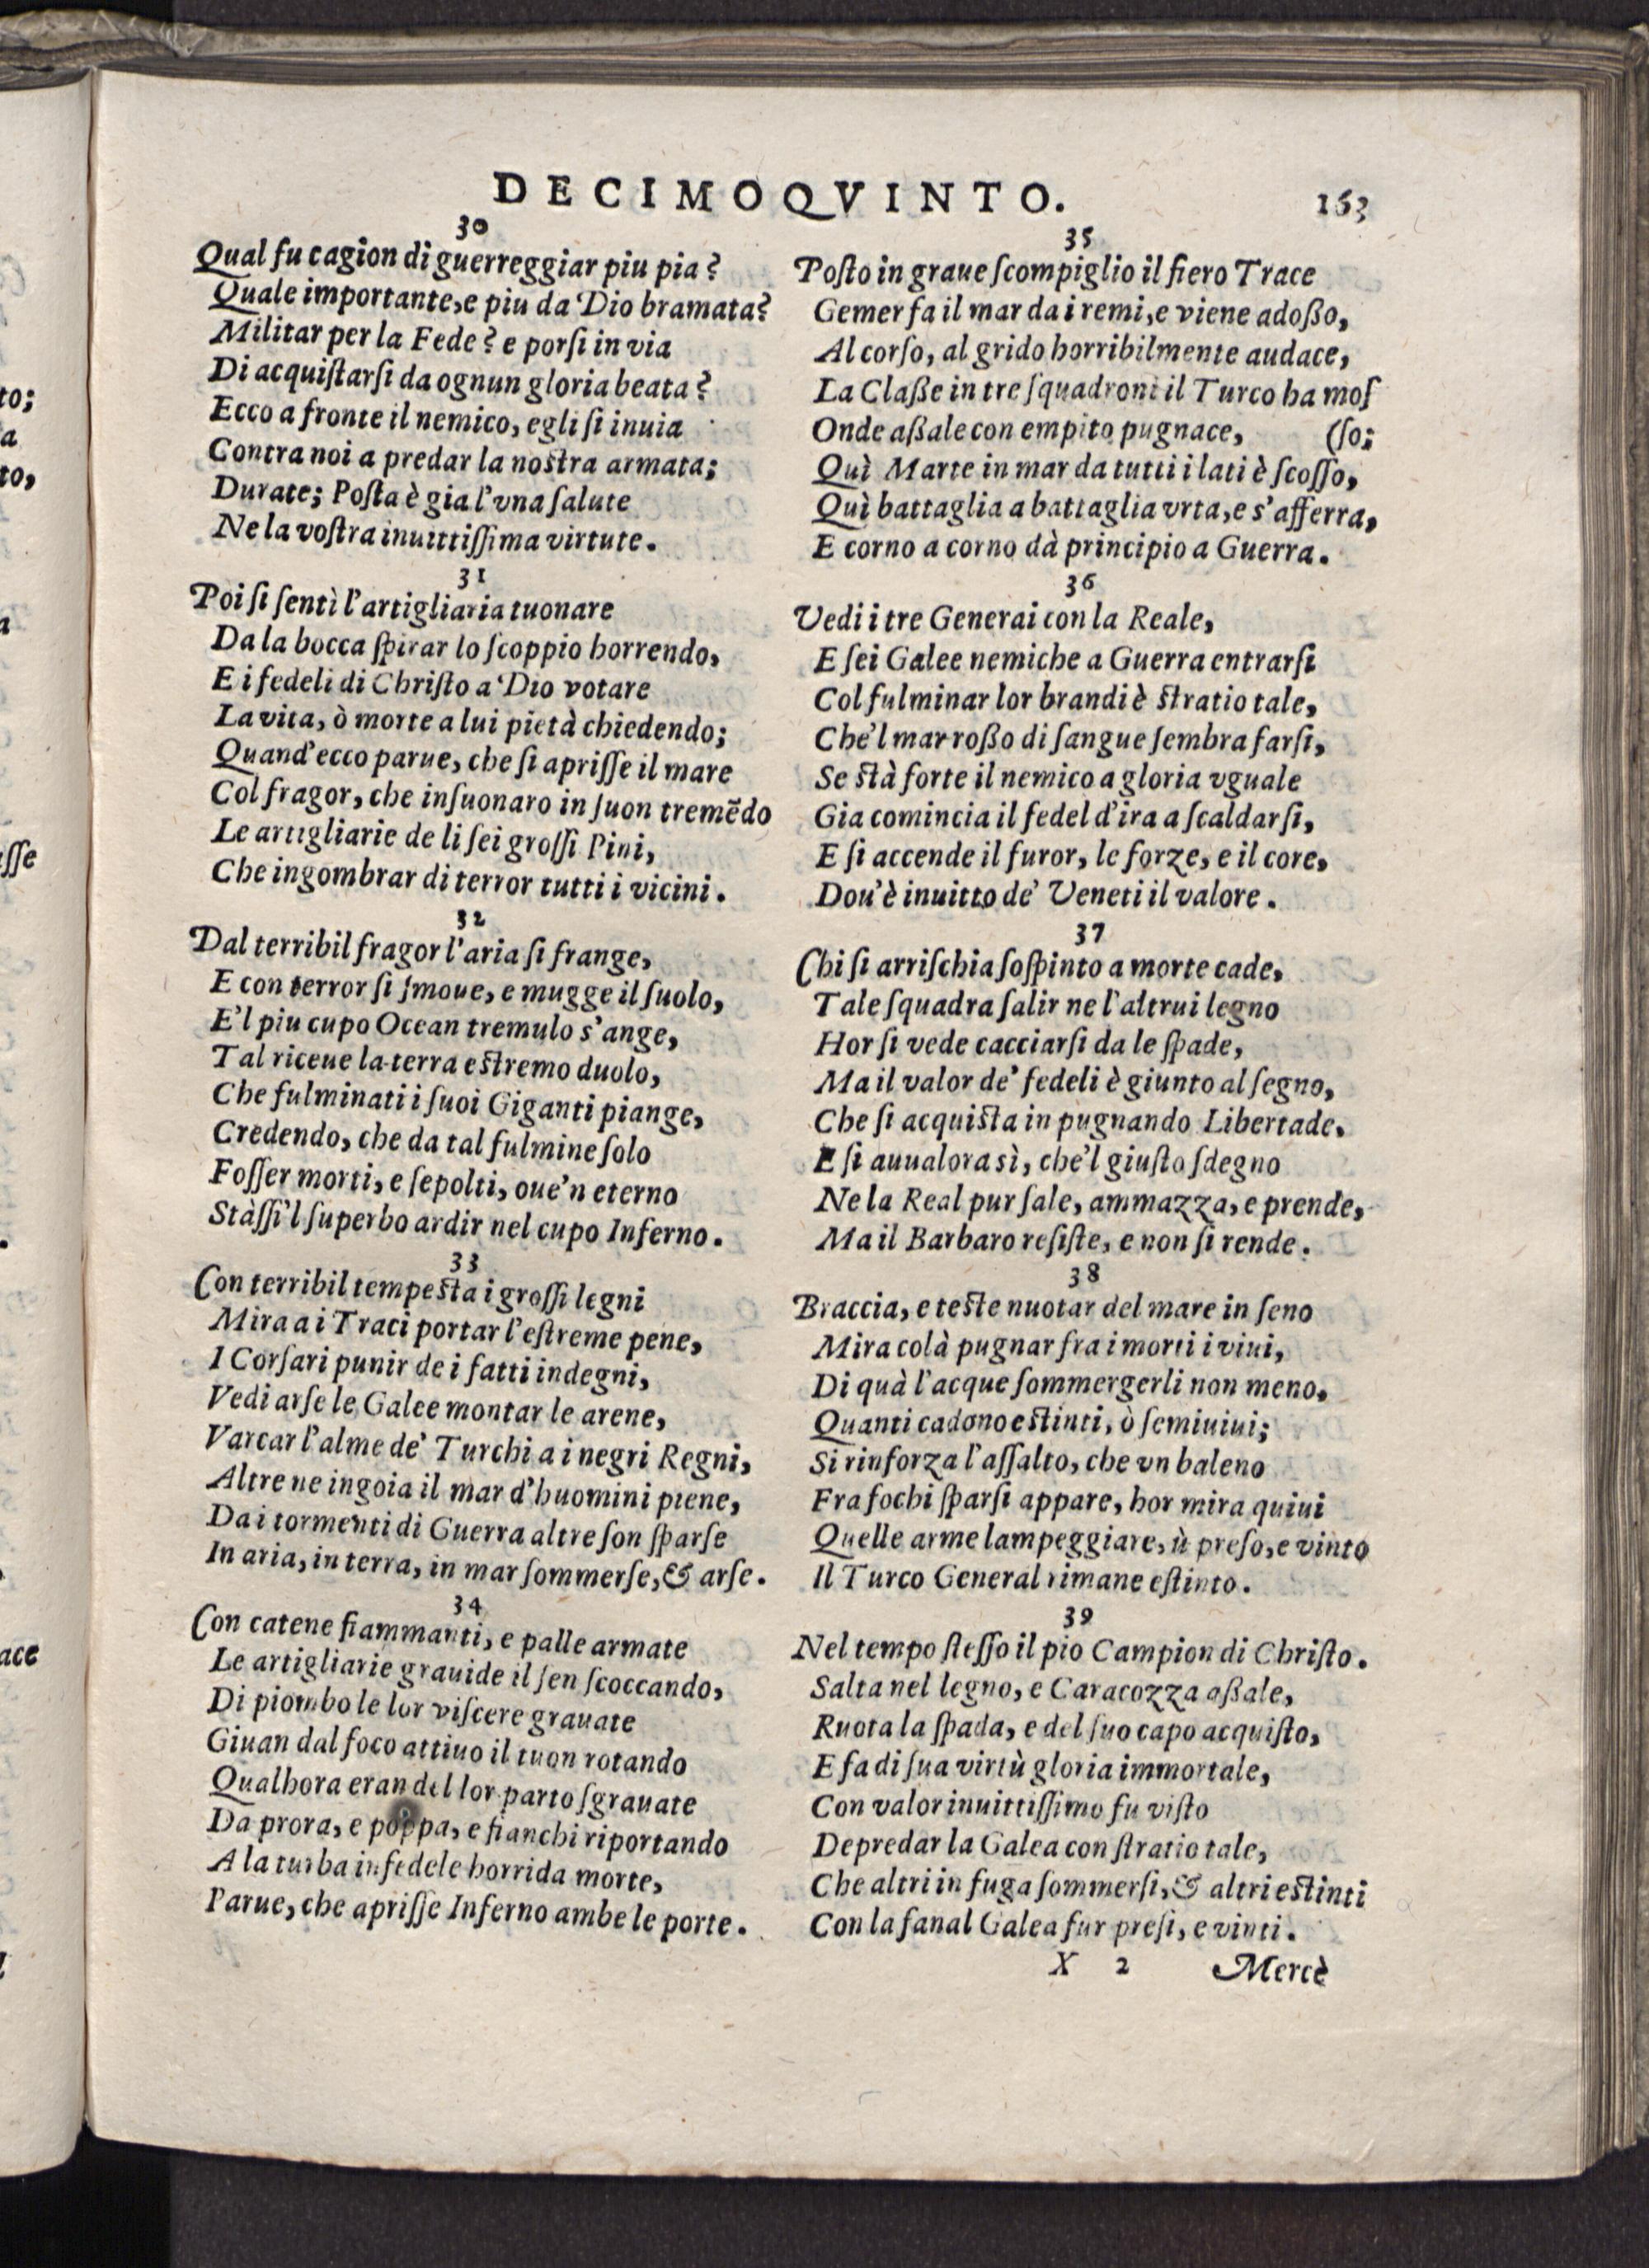 DECIMOQVINTO. 163
30
Qual fu cagion di guerreggiar piu pia?
Quale importante, e piu da Dio bramata?
Militar per la Fede? e porſi in via
Di acquiſtarſi da ognun gloria beata?
Ecco a fronte il nemico, egli ſi inuia
Contra noi a predar la noſtra armata;
Durate; Poſta è gia l'vna ſalute
Ne la voſtra inuittiſſima virtute.
31
Poi ſi ſentì l'artigliaria tuonare
Da la bocca ſpirar lo ſcoppio horrendo,
E i fedeli di Chriſto a Dio votare
La vita, ò morte a lui pietà chiedendo;
Quand'ecco parue, che ſi apriſſe il mare
Col fragor, che inſuonaro in ſuon tremẽdo
Le artigliarie de li ſei groſſi Pini,
Che ingombrar di terror tutti i vicini.
32
Dal terribil fragor l'aria ſi frange,
E con terror ſi ſmoue, e mugge il ſuolo,
E'l piu cupo Ocean tremulo s'ange,
Tal riceue la terra eſtremo duolo,
Che fulminati i ſuoi Giganti piange,
Credendo, che da tal fulmine ſolo
Foſſer morti, e ſepolti, oue'n eterno
Stàſſi'l ſuperbo ardir nel cupo Inferno.
33
Con terribil tempeſta i groſſi legni
Mira a i Traci portar l'eſtreme pene,
I Corſari punir de i fatti indegni,
Vedi arſe le Galee montar le arene,
Varcar l'alme de' Turchi a i negri Regni,
Altre ne ingoia il mar d'huomini piene,
Da i tormenti di Guerra altre ſon ſparſe
In aria, in terra, in mar ſommerſe, & arſe.
34
Con catene fiammanti, e palle armate
Le artigliarie grauide il ſen ſcoccando,
Di piombo le lor viſcere grauate
Giuan dal foco attiuo il tuon rotando
Qualhora eran del lor parto ſgrauate
Da prora, e poppa, e fianchi riportando
A la turba infedele horrida morte,
Parue, che apriſſe Inferno ambe le porte.
35
Poſto in graue ſcompiglio il fiero Trace
Gemer fa il mar da i remi, e viene adoßo,
Al corſo, al grido horribilmente audace,
La Claße in tre ſquadroni il Turco ha moſ
Onde aßale con empito pugnace, (ſo;
Quì Marte in mar da tutti i lati è ſcoſſo,
Quì battaglia a battaglia vrta, e s'afferra,
E corno a corno dà principio a Guerra.
36
Vedi i tre Generai con la Reale,
E ſei Galee nemiche a Guerra entrarſi
Col fulminar lor brandi è ſtratio tale,
Che'l mar roßo di ſangue ſembra farſi,
Se ſtà forte il nemico a gloria vguale
Gia comincia il fedel d'ira a ſcaldarſi,
E ſi accende il furor, le forze, e il core,
Dou'è inuitto de' Veneti il valore.
37
Chi ſi arriſchia ſoſpinto a morte cade,
Tale ſquadra ſalir ne l'altrui legno
Hor ſi vede cacciarſi da le ſpade,
Ma il valor de' fedeli è giunto al ſegno,
Che ſi acquiſta in pugnando Libertade.
E ſi auualora sì, che'l giuſto ſdegno
Ne la Real pur ſale, ammazza, e prende,
Ma il Barbaro reſiſte, e non ſi rende.
38
Braccia, e teſte nuotar del mare in ſeno
Mira colà pugnar fra i morti i viui,
Di quà l'acque ſommergerli non meno,
Quanti cadono eſtinti, ò ſemiuiui;
Si rinforza l'aſſalto, che vn baleno
Fra fochi ſparſi appare, hor mira quiui
Quelle arme lampeggiare, ù preſo, e vinto
Il Turco General rimane eſtinto.
39
Nel tempo ſteſſo il pio Campion di Chriſto.
Salta nel legno, e Caracozza aßale,
Ruota la ſpada, e del ſuo capo acquiſto,
E fa di ſua virtù gloria immortale,
Con valor inuittiſſimo fu viſto
Depredar la Galea con ſtratio tale,
Che altri in fuga ſommerſi, & altri eſtinti
Con la fanal Galea fur preſi, e vinti.
X 2 Mercè